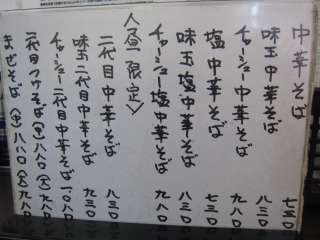 中華そば 七五〇
味玉中華そば 八三〇
チャーシュー中華そば 九八〇
塩中華そば 七三〇
味玉塩中華そば 八三〇
チャーシュー塩中華そば 九八〇
〈昼限定〉
二代目中華そば 八三〇
味玉二代目中華そば 九三〇
チャーシュー二代目中華そば 一〇八〇
二代目つけそば(中)八八〇(大)九八〇
まぜそば(中)八八〇(大)九八〇